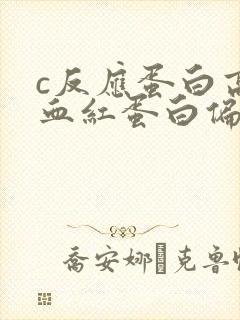 c反應蛋白高
血紅蛋白偏
喬安娜·克魯